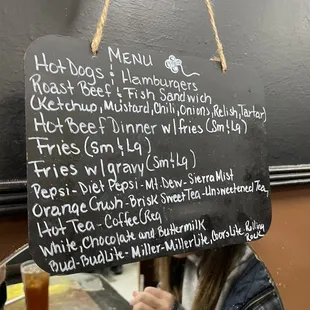 MENU
Hot Dogs & Hamburgers
Roast Beef & Fish Sandwich
(Ketchup, Mustard, Chili, Onions, Relish, Tartar)
Hot Beef Dinner w/ fries (Sm & Lg)
Fries (Sm & Lg)
Fries w/ gravy (Sm & Lg)
Pepsi - Diet Pepsi - Mt. Dew - Sierra Mist
Orange Crush - Brisk Sweet Tea - Unsweetened Tea
Hot Tea - Coffee (Reg
White, Chocolate and Buttermilk
Bud - Bud Lite - Miller - Miller Lite, Coors Lite Rolling
Rock